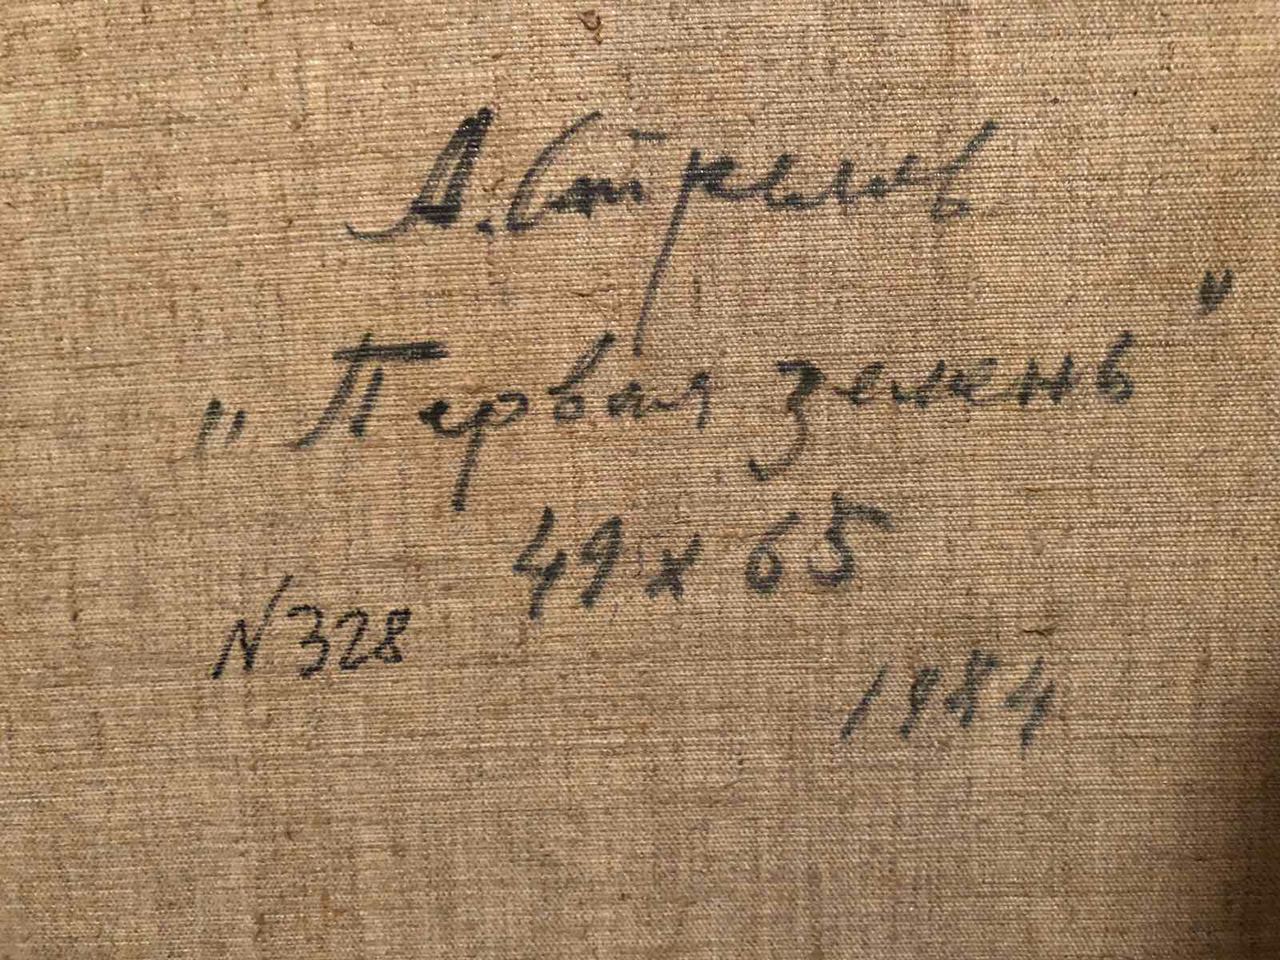 А. Стрелев
"Первая зелень"
49 х 65
N328
1984